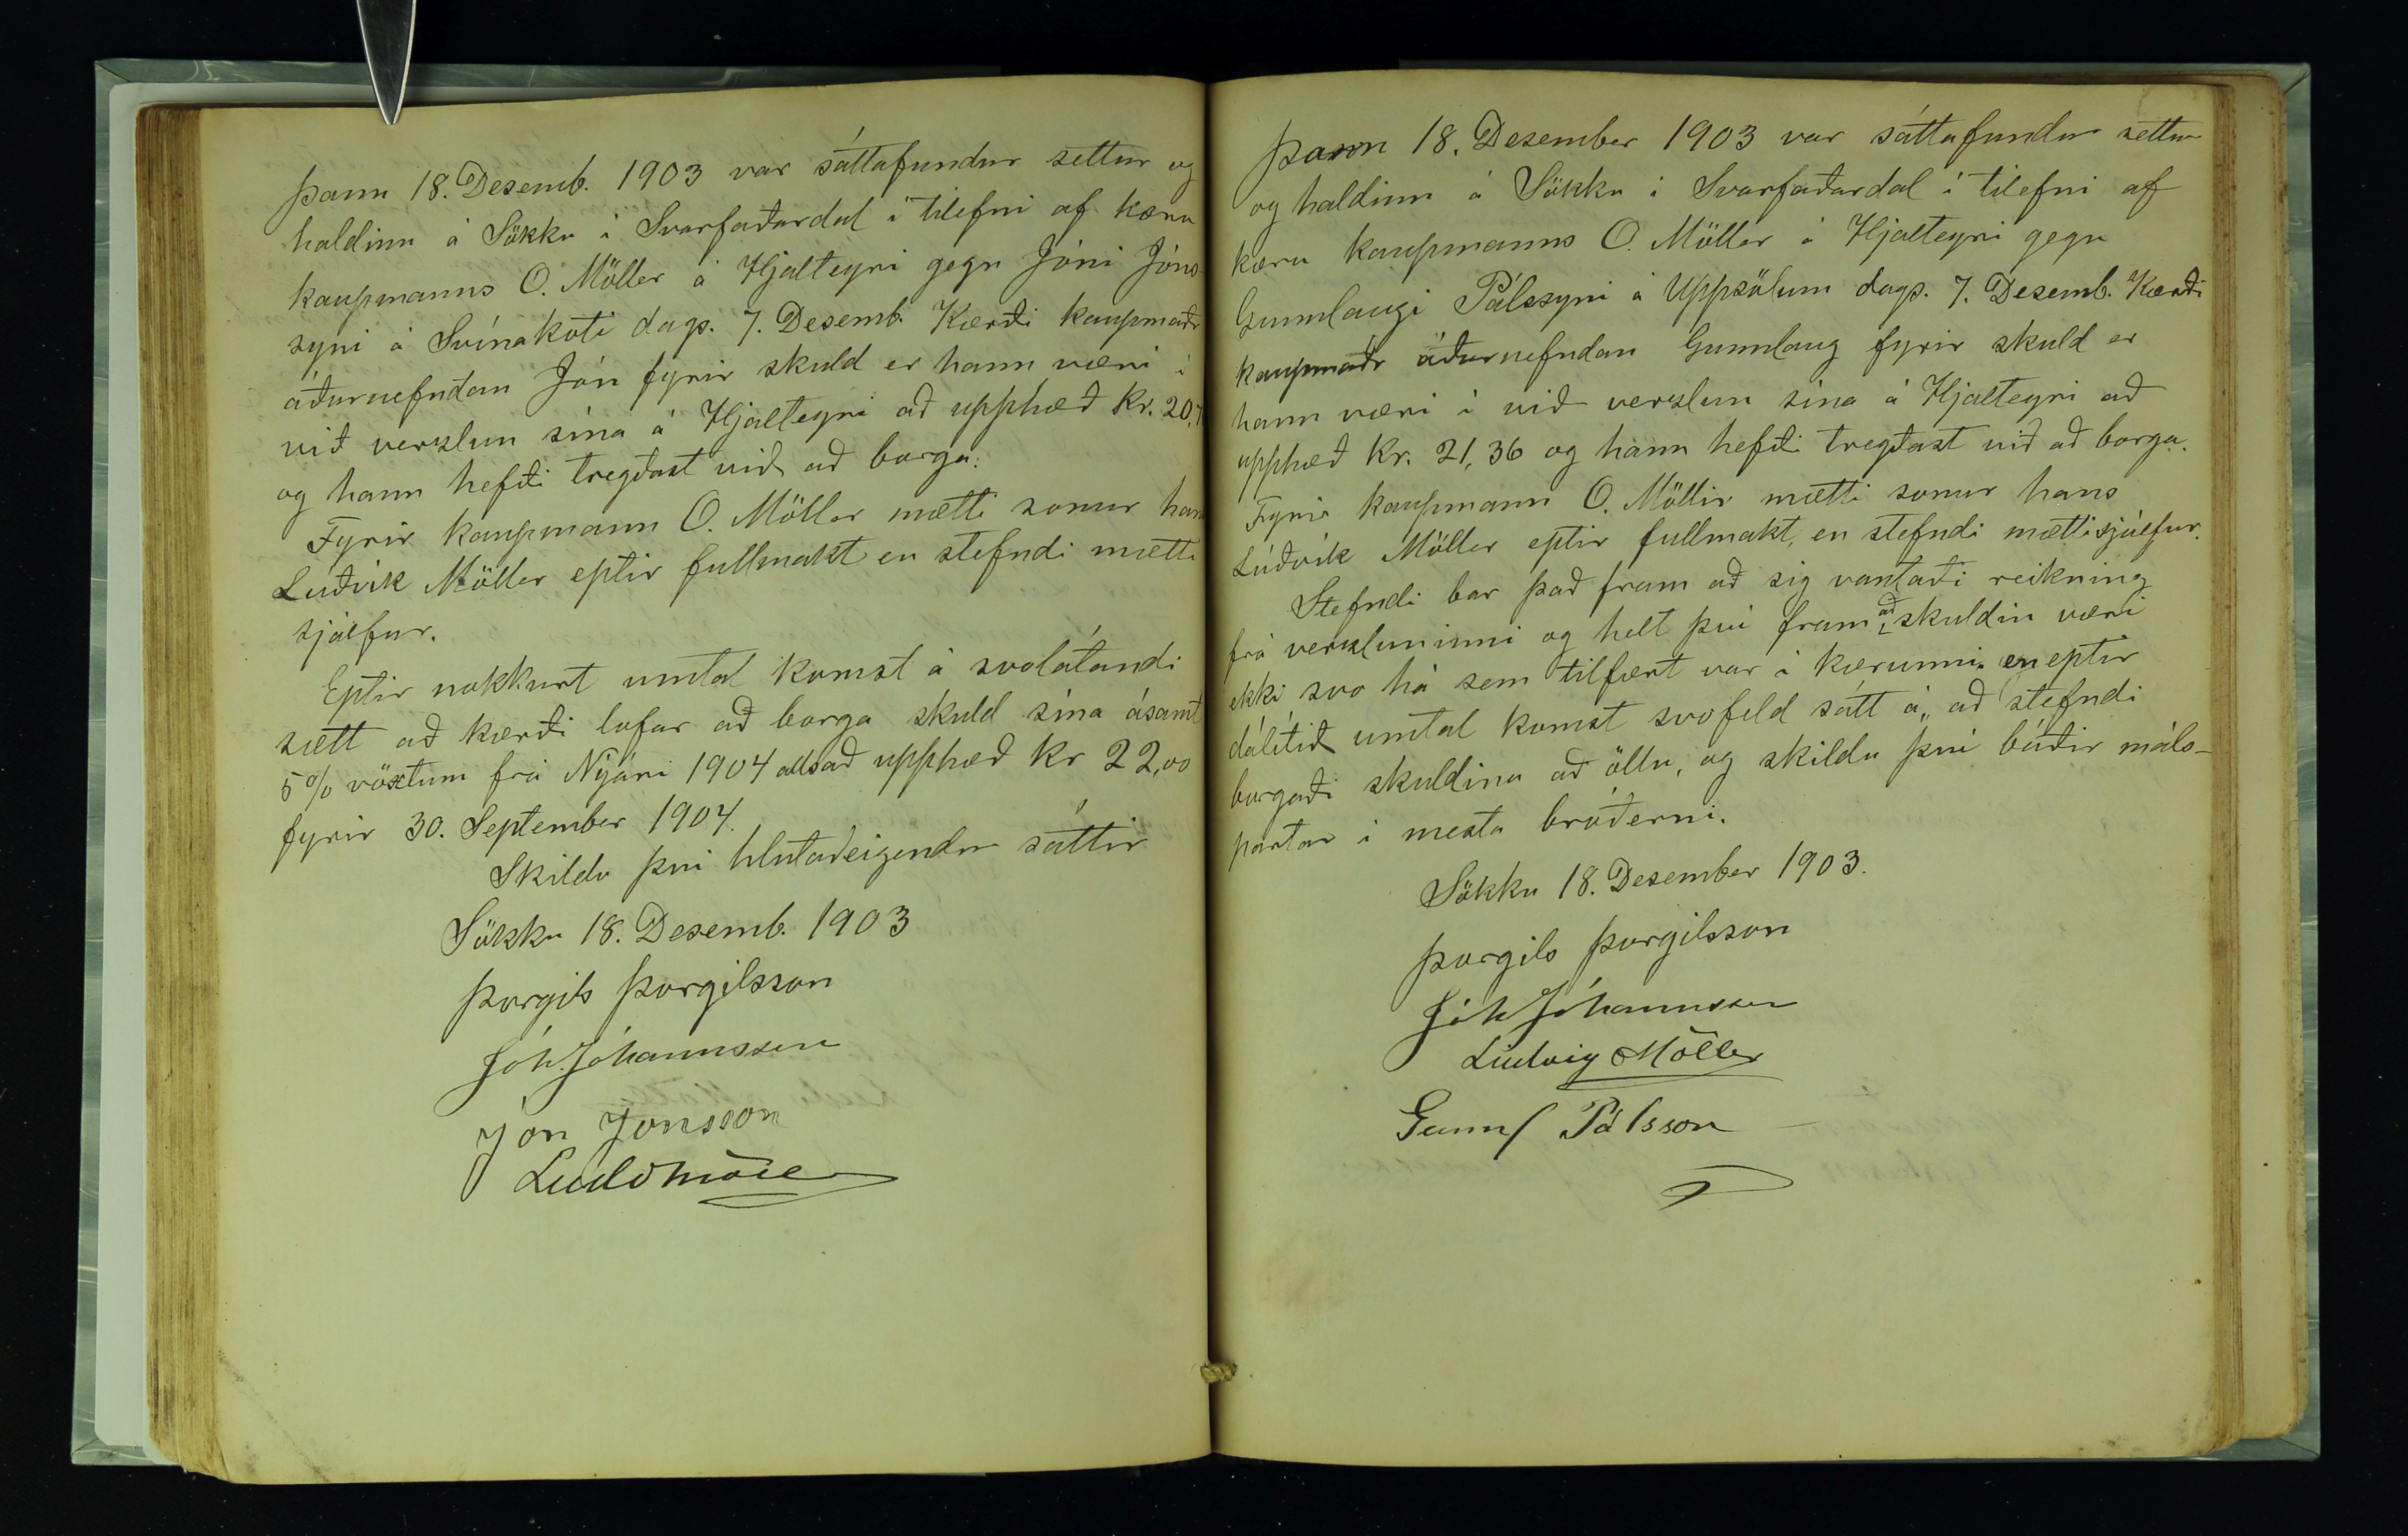 Þann 18. Desemb. 1903 var sáttafundur settur og
haldinn á Sökku í Svarfaðardal í tilefni af kæru
kaupmanns O. Möller á Hjalteyri gegn Jóni Jóns-
syni á Svínakoti dags. 7. Desemb. Kærði kaupmaðr
áðurnefndan Jón fyrir skuld er hann væri í
við verzlun sína á Hjalteyri að upphæð Kr. 20,
og hann hefði tregðast við að borga.
Fyrir kaupmann O. Möller mætti sonur hans
Luðvík Möller eptir fullmakt en stefndi mætti
sjálfur.
Eptir nokkurt umtal komst á svolátandi
sætt að kærði lofar að borga skuld sína ásamt
5% vöxtum frá Nýári 1904 alls að upphæð kr 22,00
fyrir 30. September 1904.
Skildu því hlutaðeigendur sáttir
Sökku 18. Desemb. 1903
Þorgils Þorgilsson
Jóh. Jóhannsson
Jón Jonsson
Ludv Möller
Þann 18. Desember 1903 var sáttafundur settur
og haldinn á Sökku í Svarfaðardal í tilefni af
kæru kaupmanns O. Möller á Hjalteyri gegn
Gunnlaugi Pálssyni á Uppsölum dags. 7. Desemb. Kærði
kaupmaðr áðurnefndan Gunnlaug fyrir skuld er
hann væri í við verzlun sína á Hjalteyri að
upphæð Kr. 21,36 og hann hefði tregðast við að borga.
Fyrir kaupmann O. Möllir mætti sonur hans
Lúðvík Möller eptir fullmakt, en stefndi mætti sjálfur.
Stefndi bar það fram að sig vantaði reikning
frá verzluninni og helt því fram að skuldin væri
ekki svo há sem tilfært var í kærunni. en eptir
dálítið umtal komst svofeld sátt á „ að stefndi
borgaði skuldina að öllu, og skildu því báðir máls-
partar í mesta bróðerni.
Sökku 18. Desember 1903.
Þorgils Þorgilsson
Jóh Jóhannsson
Ludvig Möller
Gunnl Pálsson